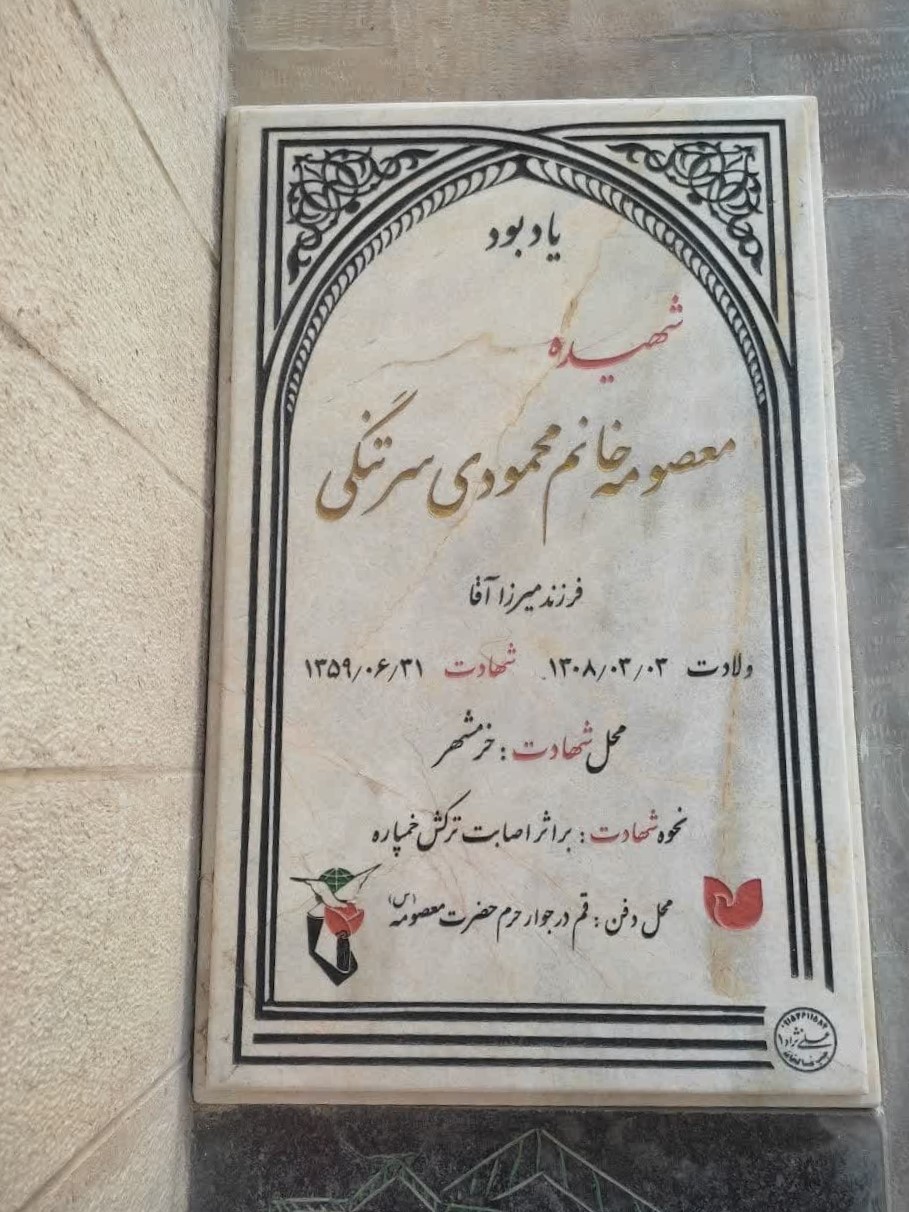 یاد بود
شهیده
معصومه خانم محمودی سرتنگی
فرزند میرزا آقا
ولادت ۱۳۰۸/۰۳/۰۳ شهادت ۱۳۵۹/۰۶/۳۱
محل شهادت : خرمشهر
نحوه شهادت : بر اثر اصابت ترکش خمپاره
محل دفن : قم در جوار حرم حضرت معصومه (س)